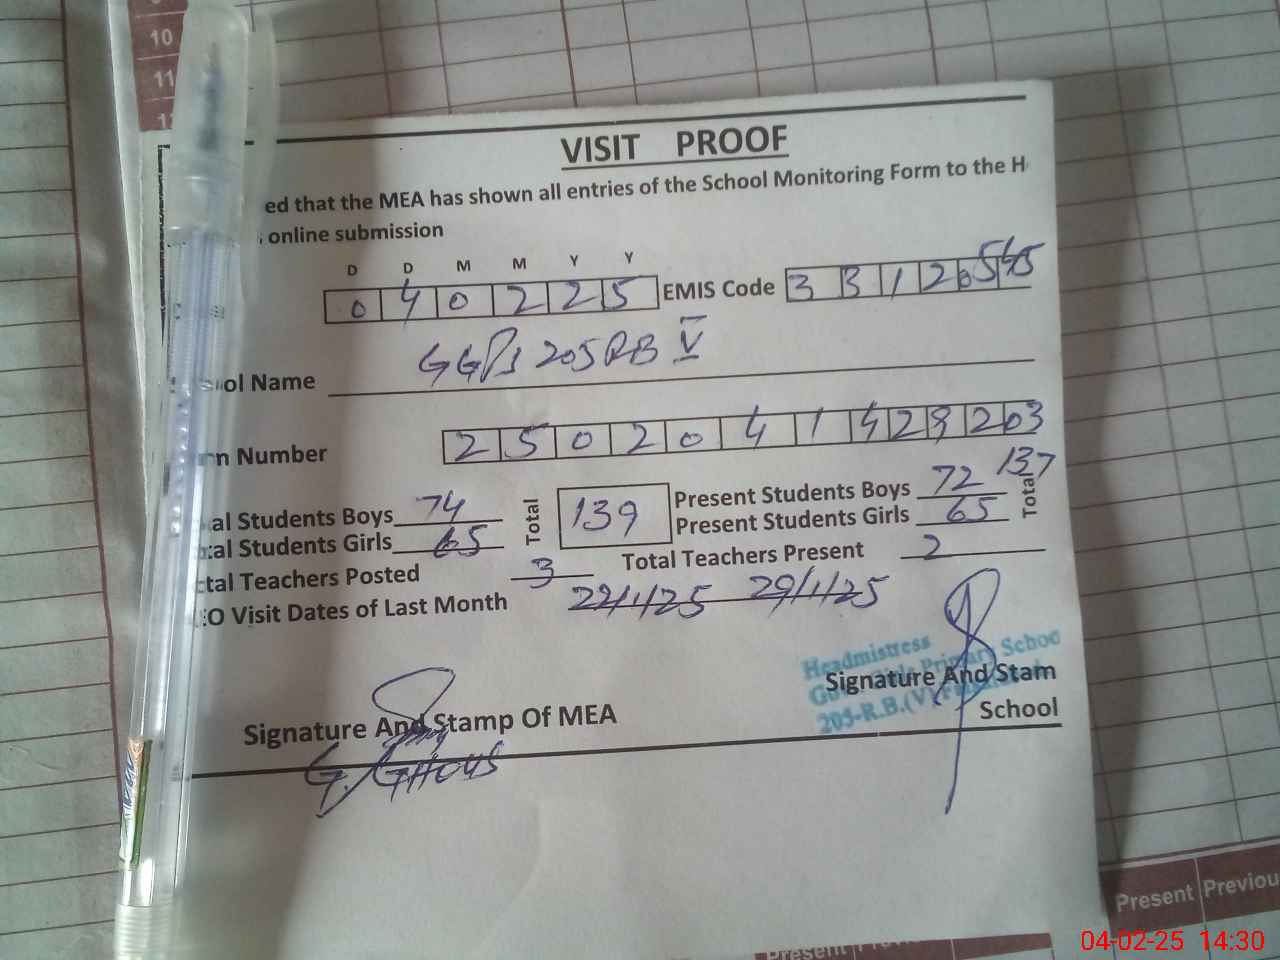 10
11
VISIT PROOF
ed that the MEA has shown all entries of the School Monitoring Form to the H
online submission
D D M M Y Y
0 4 0 2 2 5 EMIS Code 3 3 1 2
ol Name GGPS 205 RB V
n Number 2 5 0 2 0 4 1 4 2
al Students Boys 74 Total 139 Present Students Boys 72 137 Total
tal Students Girls 65 Present Students Girls 65
tal Teachers Posted 3 Total Teachers Present 2
EO Visit Dates of Last Month 22/1/25 29/1/25
Headmistress
Primary School
205-R.B.(V)
Signature And Stamp Of MEA
Signature And Stam
School
G. GHOUS
Present Previou
Present
04-02-25 14:30